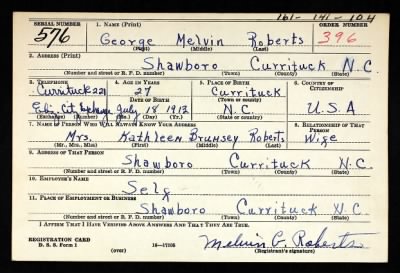 161- 141- 104
SERIAL NUMBER 1. NAME (Print) ORDER NUMBER
576 George Melvin Roberts 396
(First) (Middle) (Last)
2. ADDRESS (Print)
Shawboro Currituck N.C.
(Number and street or R. F. D. number) (Town) (County) (State)
3. TELEPHONE 4. AGE IN YEARS 5. PLACE OF BIRTH 6. COUNTRY OF CITIZENSHIP
Currituck 221 27 Currituck
DATE OF BIRTH (Town or county)
Eliz. Cit Exchange July 18 1913 N.C. U.S.A
(Exchange) (Number) (Mo.) (Day) (Yr.) (State or country)
7. NAME OF PERSON WHO WILL ALWAYS KNOW YOUR ADDRESS 8. RELATIONSHIP OF THAT PERSON
Mrs. Kathleen Brumsey Roberts Wife
(Mr., Mrs., Miss) (First) (Middle) (Last)
9. ADDRESS OF THAT PERSON
Shawboro Currituck N.C.
(Number and street or R. F. D. number) (Town) (County) (State)
10. EMPLOYER'S NAME
Self
11. PLACE OF EMPLOYMENT OR BUSINESS
Shawboro Currituck N.C.
(Number and street or R. F. D. number) (Town) (County) (State)
I AFFIRM THAT I HAVE VERIFIED ABOVE ANSWERS AND THAT THEY ARE TRUE.
REGISTRATION CARD
D. S. S. Form 1 (over) 16—17105 Melvin G. Roberts
(Registrant's signature)